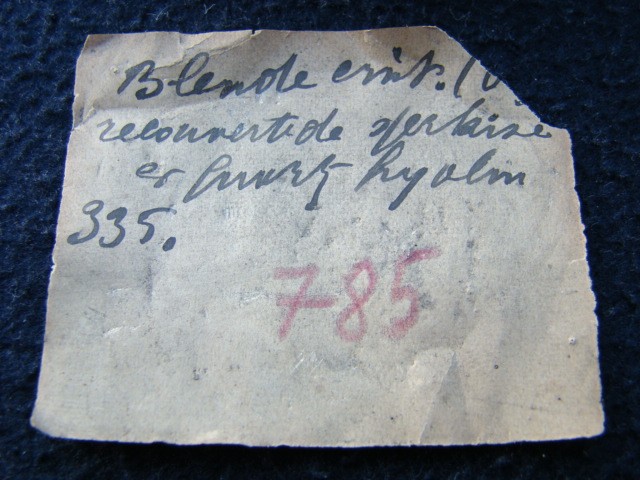 Blende crist. (
recouverte de sperkise
et quartz hyalin
335.
785